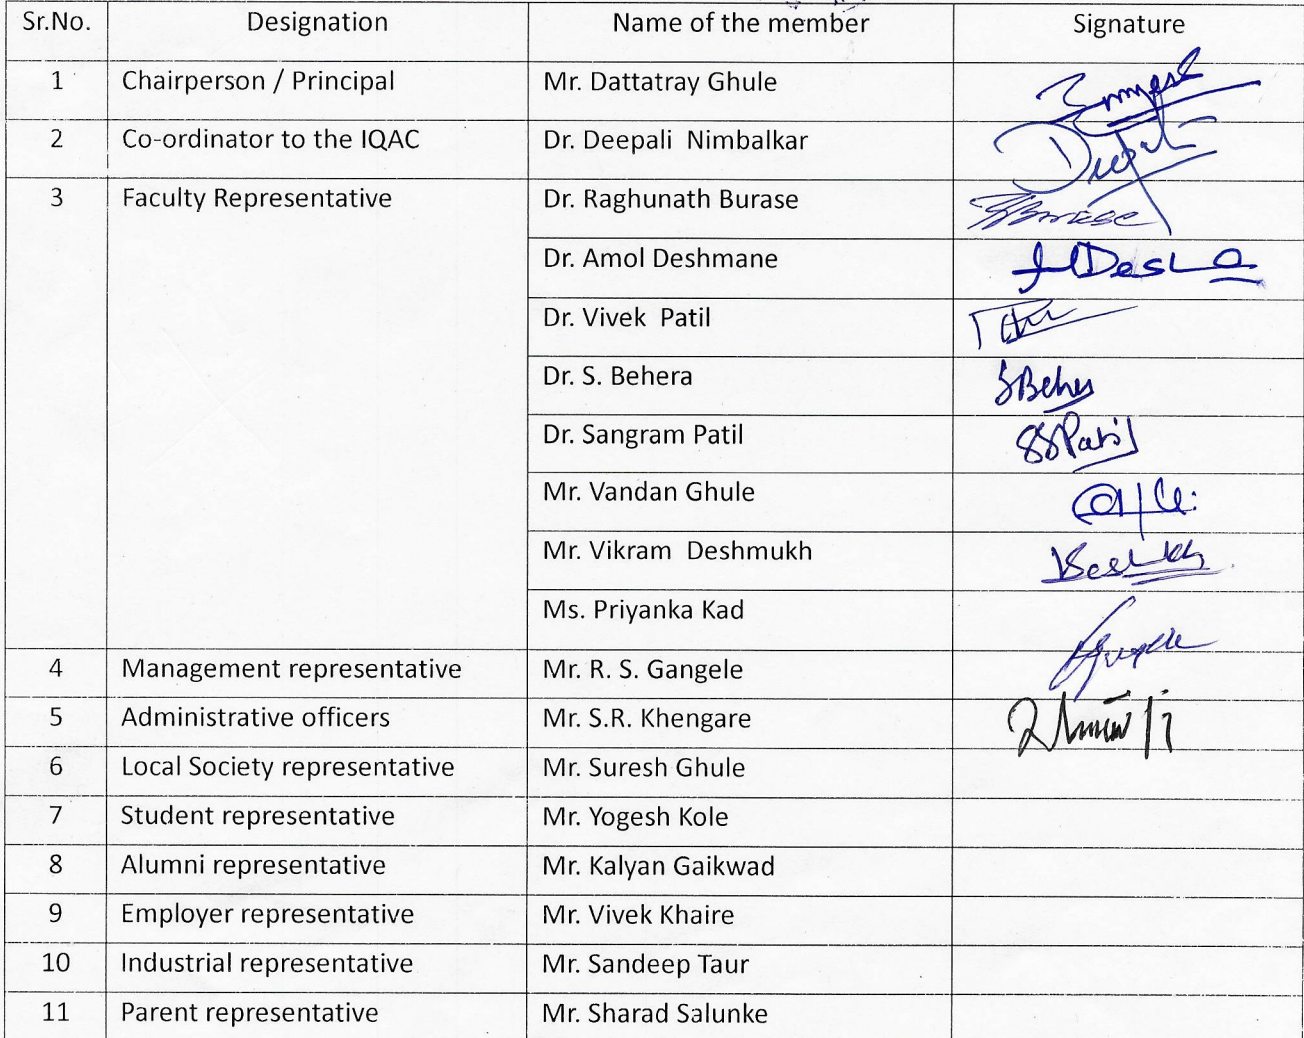 Sr.No. Designation Name of the member Signature
1 Chairperson / Principal Mr. Dattatray Ghule
2 Co-ordinator to the IQAC Dr. Deepali Nimbalkar Deepali
3 Faculty Representative Dr. Raghunath Burase Burase
Dr. Amol Deshmane
Dr. Vivek Patil
Dr. S. Behera SBehera
Dr. Sangram Patil SSPatil
Mr. Vandan Ghule
Mr. Vikram Deshmukh
Ms. Priyanka Kad
4 Management representative Mr. R. S. Gangele
5 Administrative officers Mr. S.R. Khengare
6 Local Society representative Mr. Suresh Ghule
7 Student representative Mr. Yogesh Kole
8 Alumni representative Mr. Kalyan Gaikwad
9 Employer representative Mr. Vivek Khaire
10 Industrial representative Mr. Sandeep Taur
11 Parent representative Mr. Sharad Salunke